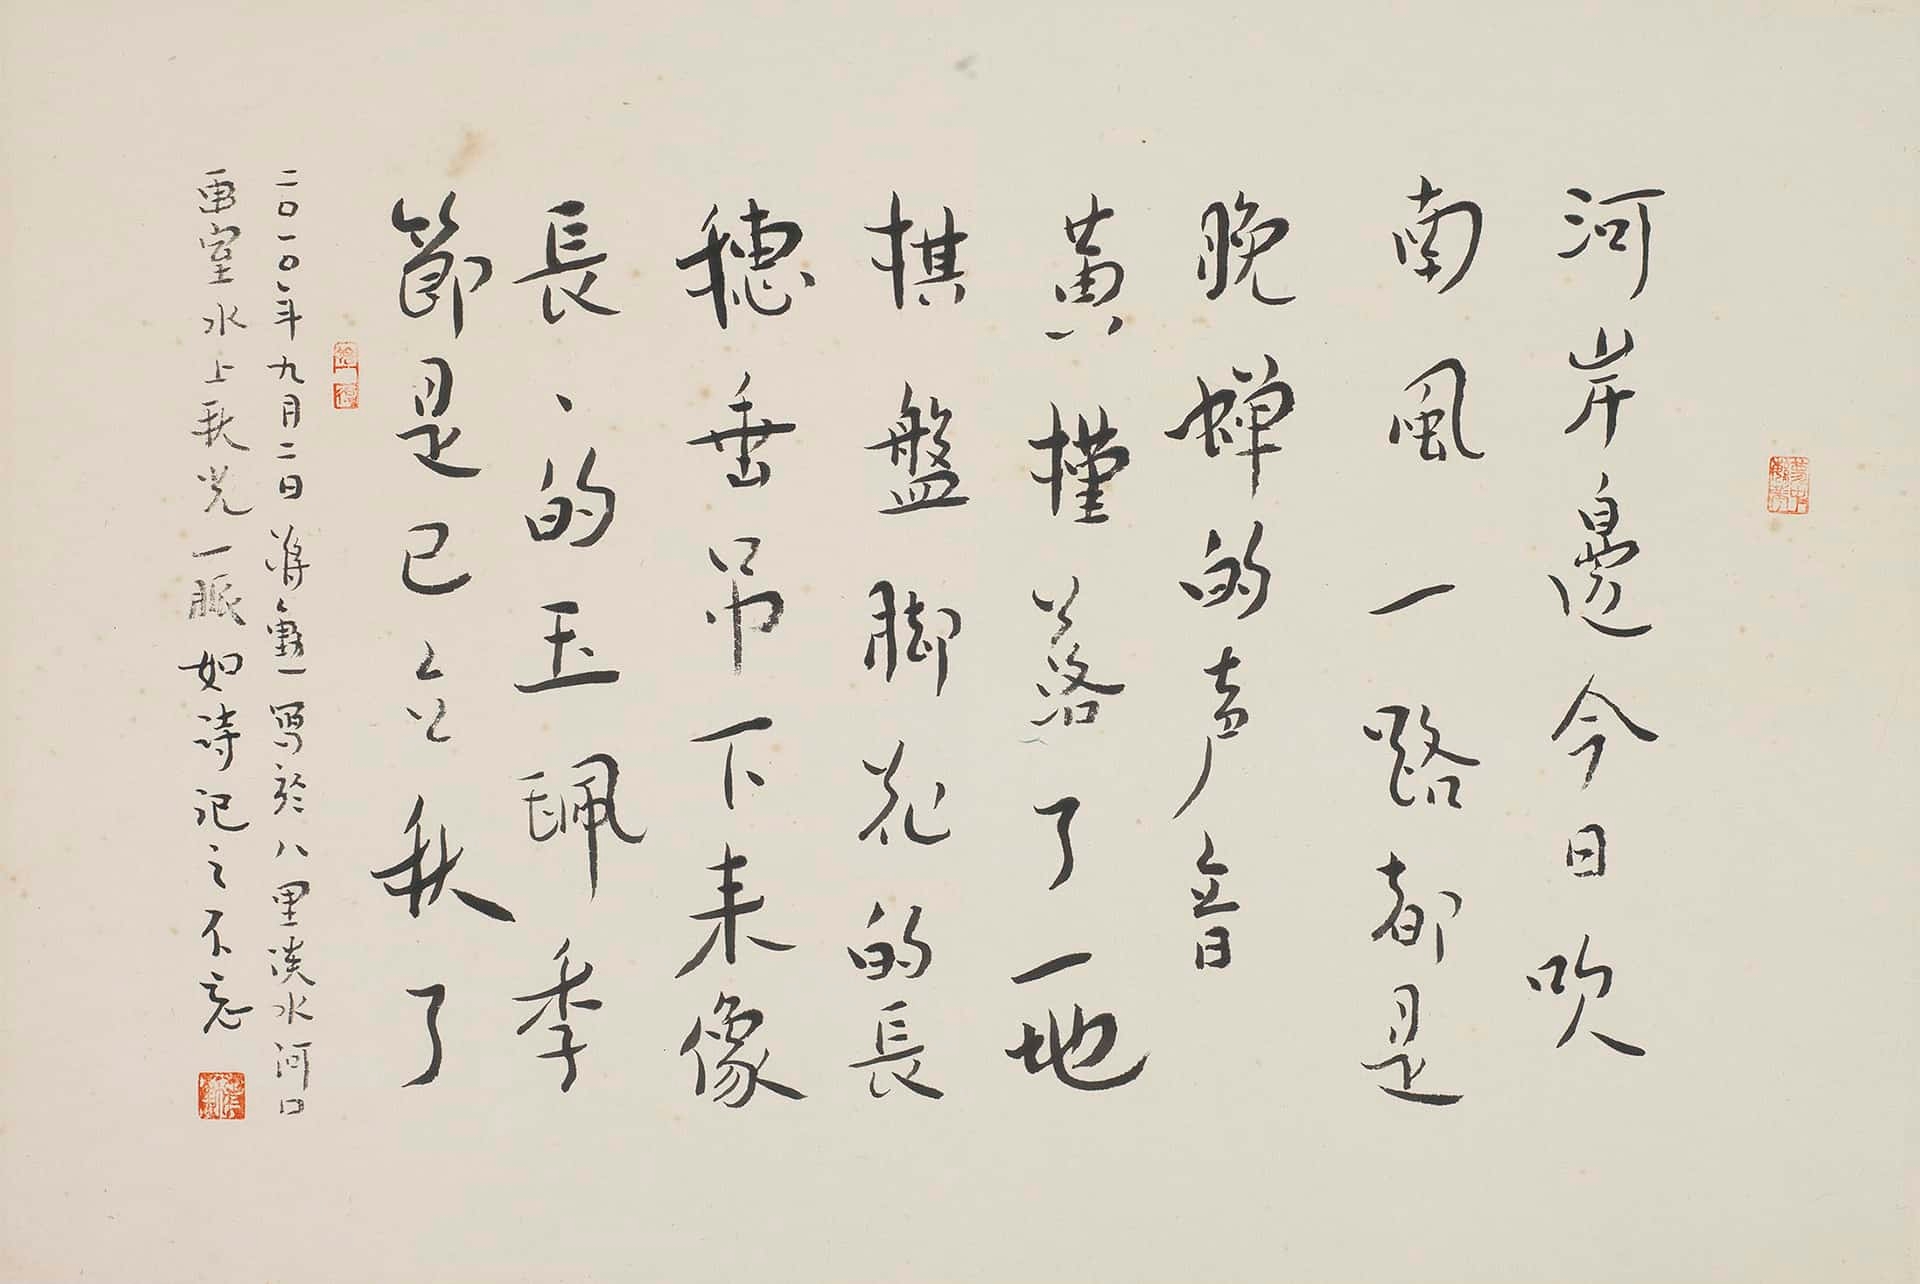 河岸邊今日吹
南風一路都是
晚蟬的声音
黄槿落了一地
棋盤脚花的長
穗垂吊下来像
長、的玉珮季
節是已立秋了
二〇一〇年九月二日蔣勳寫於八里淡水河口
畫室水上秋光一脈如詩記之不忘